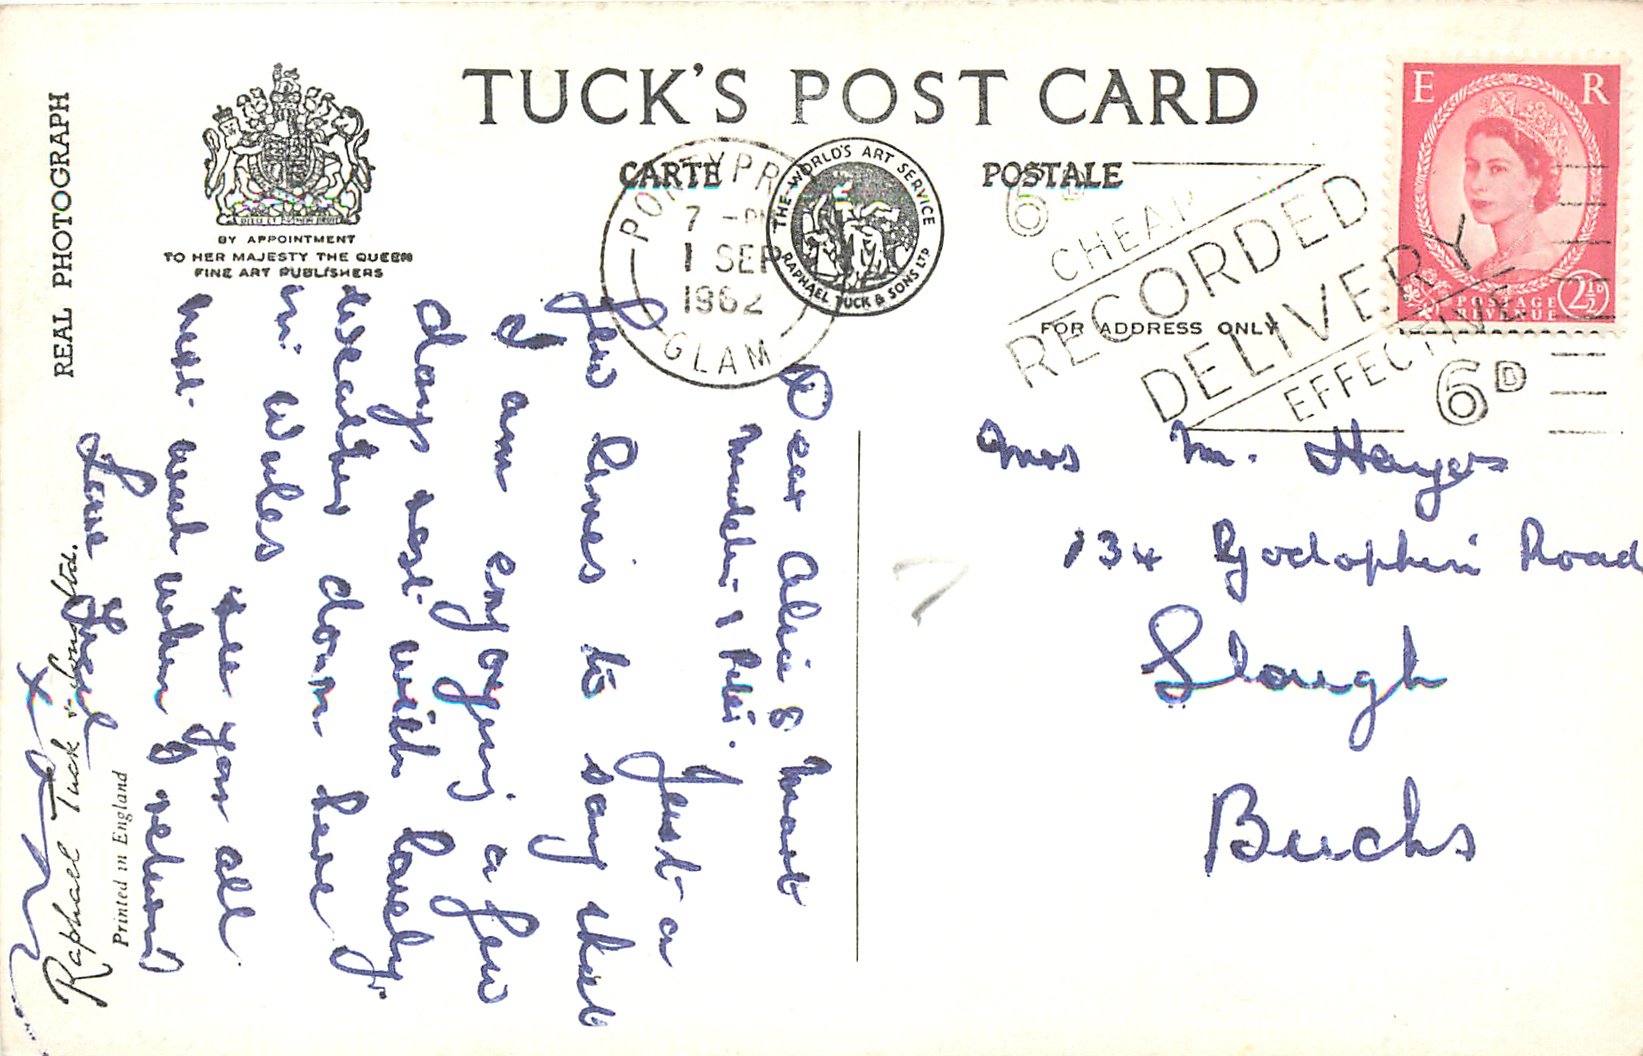 TUCK'S POST CARD
CARTE POSTALE
REAL PHOTOGRAPH
DIEU ET MON DROIT
BY APPOINTMENT
TO HER MAJESTY THE QUEEN
FINE ART PUBLISHERS
THE WORLD'S ART SERVICE
RAPHAEL TUCK & SONS LTD
PONTYPR
7 - PM
1 SEP
1962
GLAM
6D
CHEAP
RECORDED
DELIVERY
EFFECTIVE
6D
E R
POSTAGE
REVENUE
2½D
FOR ADDRESS ONLY
Mrs M. Hayes
134 Godolphin Road
Slough
Bucks
Dear &
Just a
few lines to say that
I am enjoying a few
days rest with lovely
weather down here
in Wales
see you all
next week when I return
Love
x
Raphael Tuck & Sons Ltd.
Printed in England